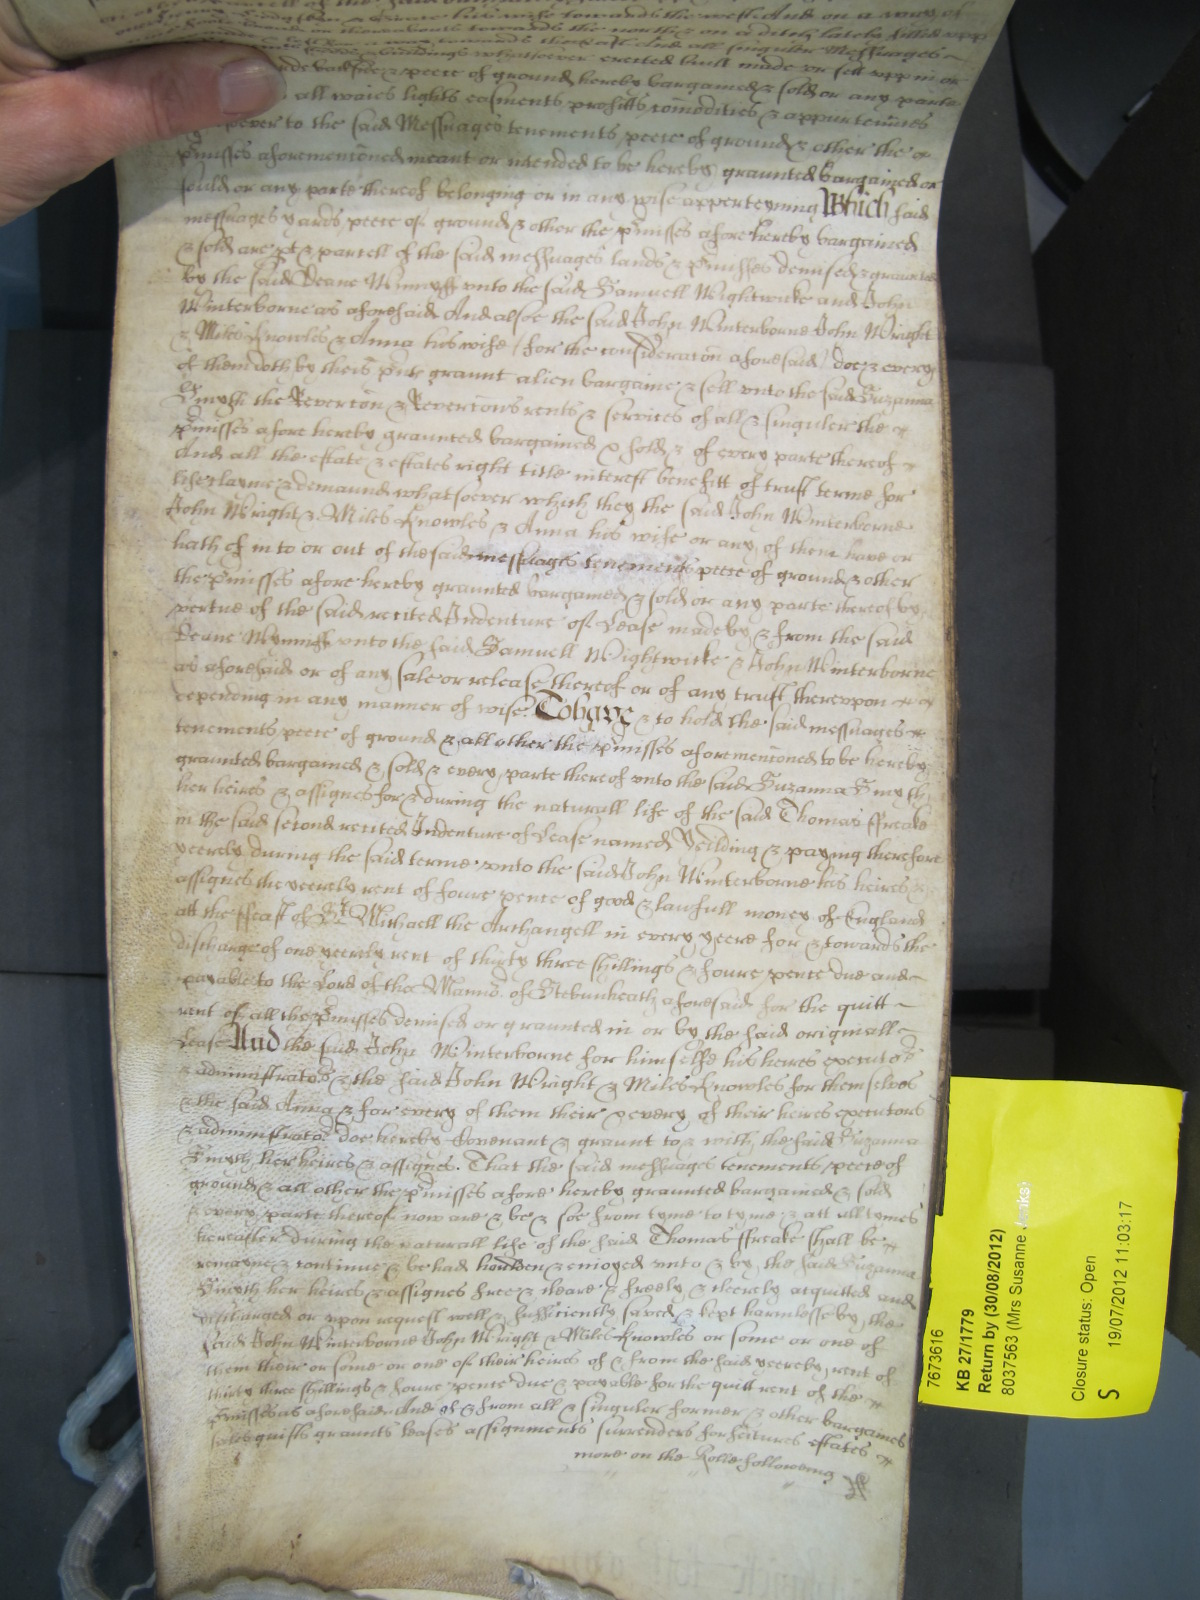 towards the west And on a way of
towards the north & on a ditch lately filled upp
towards the East And all singuler Messuages
& buildings whatsoever erected built made or sett upp in or
& peece of ground hereby bargained & sold or any parte
all waies lights easments proffitts comodities & appurtennces
to the said Messuages tenements peece of ground & other the
pmisses aforementioned meant or intended to be hereby graunted bargained or
sould or any parte thereof belonging or in any wise apperteyning Which said
messuages yards peece of ground & other the pmisses afore hereby bargained
& sold are pt & parcell of the said messuages lands & pmisses demised & graunted
by the said Deane Wynniff vnto the said Samuell Wightwicke and John
Winterborne as aforesaid And alsoe the said John Winterborne John Wright
& Miles Knowles & Anna his wife (for the consideracon aforesaid) doe & every
of them doth by theis pnts graunt alien bargaine & sell vnto the said Suzanna
Smyth the Revercon & Revercons rents & services of all & singuler the
pmisses afore hereby graunted bargained & sold & of every parte thereof &
And all the estate & estates right title interest benefitt of trust terme for
life clayme & demaund whatsoever which they the said John Winterborne
John Wright & Miles Knowles & Anna his wife or any of them have or
hath of in to or out of the said messuages tenements peece of ground & other
the pmisses afore hereby graunted bargained & sold or any parte thereof by
vertue of the said recited Indenture of Lease made by & from the said
Deane Wynniff vnto the said Samuell Wightwicke & John Winterborne
as aforesaid or of any sale or release thereof or of any trust therevpon
depending in any manner of wise. To have & to hold the said messuages
tenements peece of ground & all other the pmisses aforementioned to be hereby
graunted bargained & sold & every parte thereof vnto the said Suzanna Smyth
her heires & assignes for & during the naturall life of the said Thomas ffreake
in the said second recited Indenture of Lease named Yeilding & paying therefore
yeerely during the said terme vnto the said John Winterborne his heires &
assignes the yeerely rent of foure pence of good & lawfull money of England
att the ffeast of St Michaell the Archangell in every yeere for & towards the
discharge of one yeerely rent of thirty three shillings & foure pence due and
payable to the Lord of the Mannor of Stebunheath aforesaid for the quitt
rent of all the pmisses demised or graunted in or by the said originall
Lease And the said John Winterborne for himselfe his heires executors
& administrators & the said John Wright & Miles Knowles for themselves
& the said Anna & for every of them their & every of their heires executors
& administrators doe hereby Covenant & graunt to & with the said Suzanna
Smyth her heires & assignes. That the said messuages tenements peece of
ground & all other the pmisses afore hereby graunted bargained & sold
& every parte thereof now are & be & soe from tyme to tyme & att all tymes
hereafter during the naturall life of the said Thomas ffreake shall be
remayne & continue & be had houlden & enioyed vnto & by the said Suzanna
Smyth her heires & assignes free & cleare & freely & cleerely acquitted and
discharged or vpon request well & sufficiently saved & kept harmlesse by the
said John Winterborne John Wright & Miles Knowles or some or one of
them their or some or one of their heires of & from the said yeerely rent of
thirty three shillings & foure pence due & payable for the quitt rent of the
pmisses as aforesaid And of & from all & singuler former & other bargaines
sales guifts graunts leases assignments surrenders forfeitures estates
more on the Rolle following
7673616
KB 27/1779
Return by (30/08/2012)
8037563 (Mrs Susanne
Closure status: Open
S 19/07/2012 11:03:17